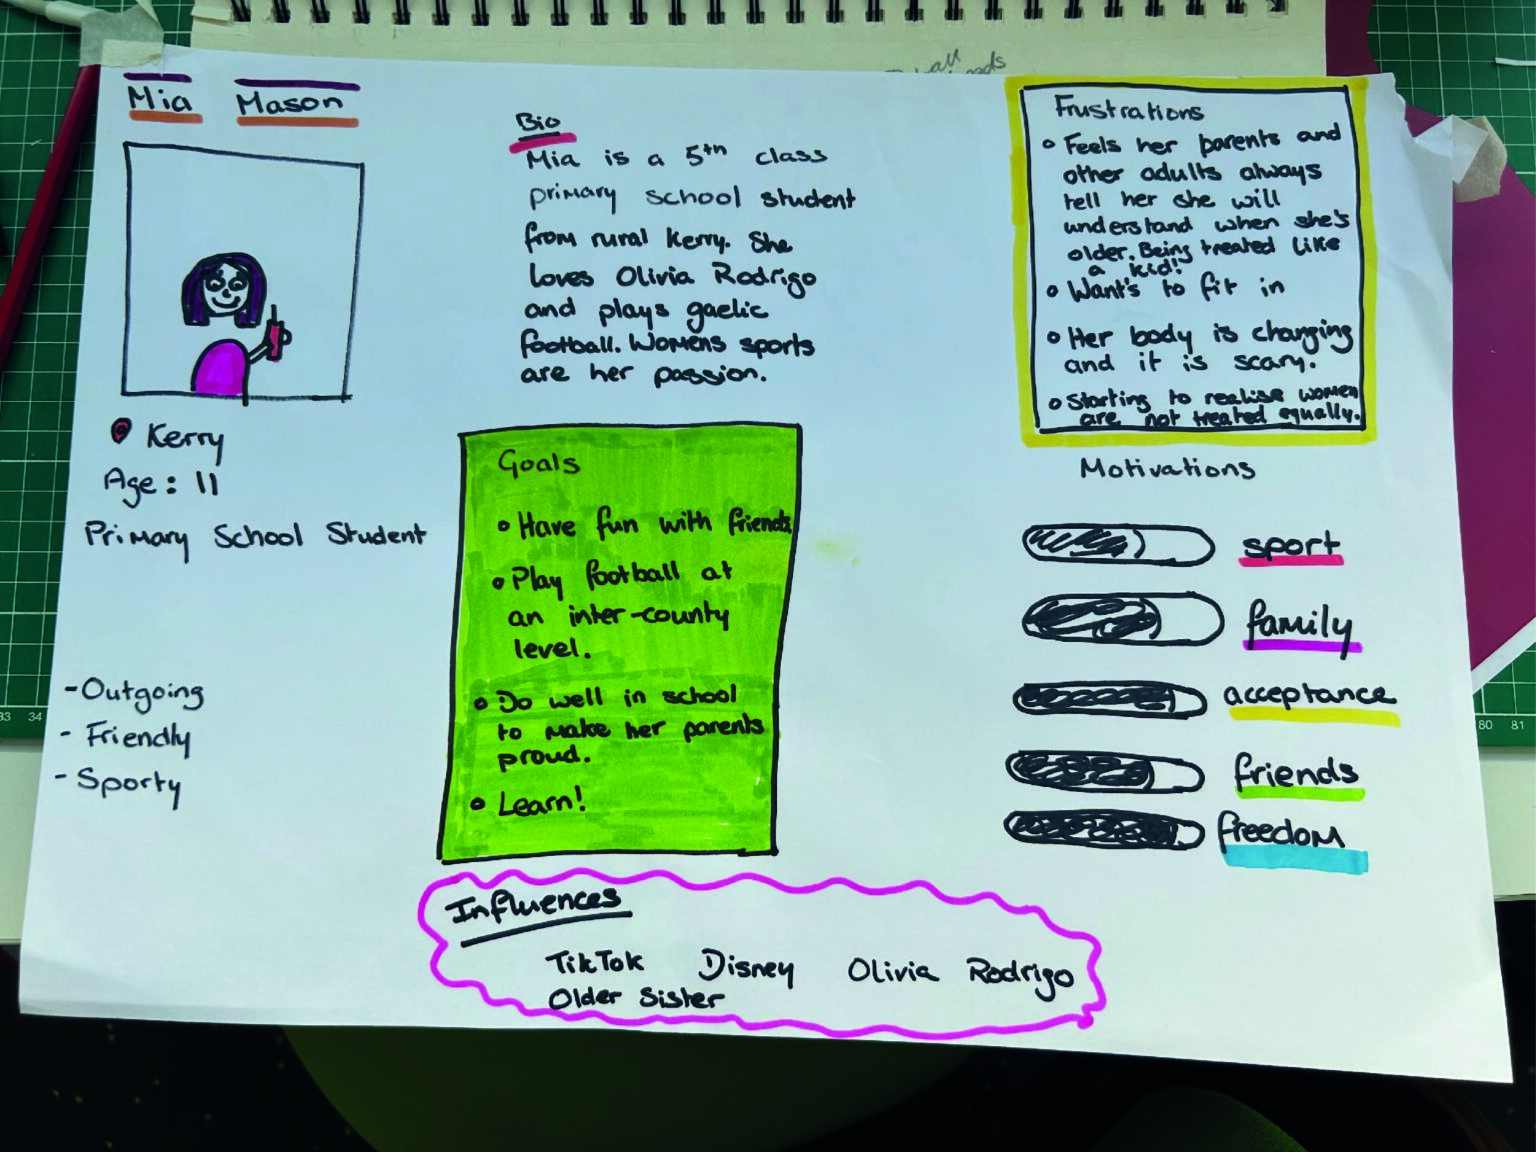 Mia Mason
Kerry
Age: 11
Primary School Student
-Outgoing
- Friendly
- Sporty
Bio
Mia is a 5th class
primary school student
from rural Kerry. She
loves Olivia Rodrigo
and plays gaelic
football. Womens sports
are her passion.
Goals
Have fun with friends
Play football at
an inter-county
level.
Do well in school
to make her parents
proud.
Learn!
Frustrations
Feels her parents and
other adults always
tell her she will
understand when she's
older. Being treated like
a kid!
Want's to fit in
Her body is changing
and it is scary.
Starting to realise women
are not treated equally.
Motivations
sport
family
acceptance
friends
freedom
Influences
TikTok Disney Olivia Rodrigo
Older Sister
33 34
80 81